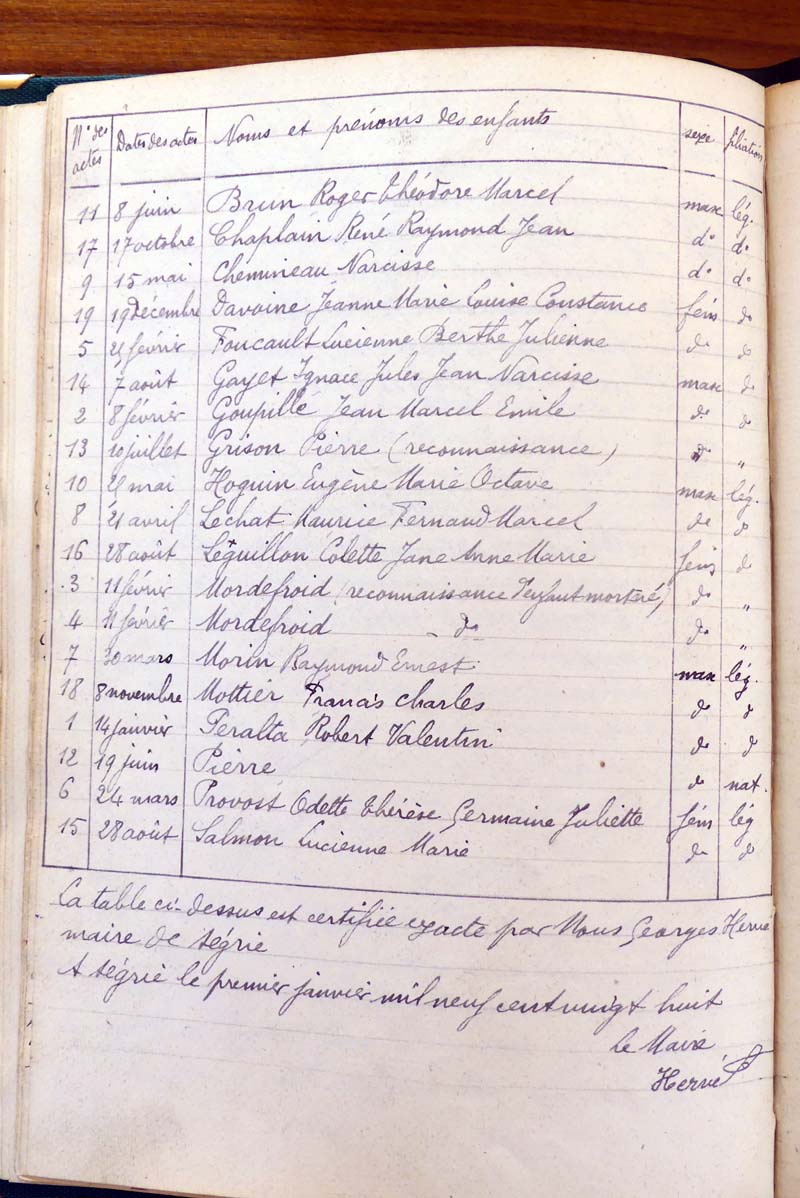 N° des actes Dates des actes Noms et prénoms des enfants sexe filiation
11 8 juin Brun Roger Théodore Marcel masc lég.
17 17 octobre Chaplain René Raymond Jean d° d°
9 15 mai Chemineau Narcisse d° d°
19 19 décembre Davoine Jeanne Marie Louise Constance fém d°
5 21 février Foucault Lucienne Berthe Julienne d° d°
14 7 août Gayet Ignace Jules Jean Narcisse masc d°
2 8 février Goupille Jean Marcel Emile d° d°
13 10 juillet Grison Pierre (reconnaissance) d° "
10 21 mai Hoguin Eugène Marie Octave masc lég.
8 21 avril Lechat Maurice Fernand Marcel d° d°
16 28 août Léguillon Colette Jane Anne Marie fém d°
3 11 févrir Mordefroid (reconnaissance d'enfant mort né) d° "
4 11 février Mordefroid - d° d° "
7 30 mars Morin Raymond Ernest masc lég.
18 8 novembre Mottier Francis Charles d° d°
1 14 janvier Peralta Robert Valentin d° d°
12 19 juin Pierre d° nat.
6 24 mars Provost Odette Thérèse Germaine Juliette fém lég
15 28 août Salmon Lucienne Marie d° d°
La table ci-dessus est certifiée exacte par Nous Georges Hervé
maire de Ségrie
A Ségrie le premier janvier mil neuf cent vingt huit
Le Maire
Hervé